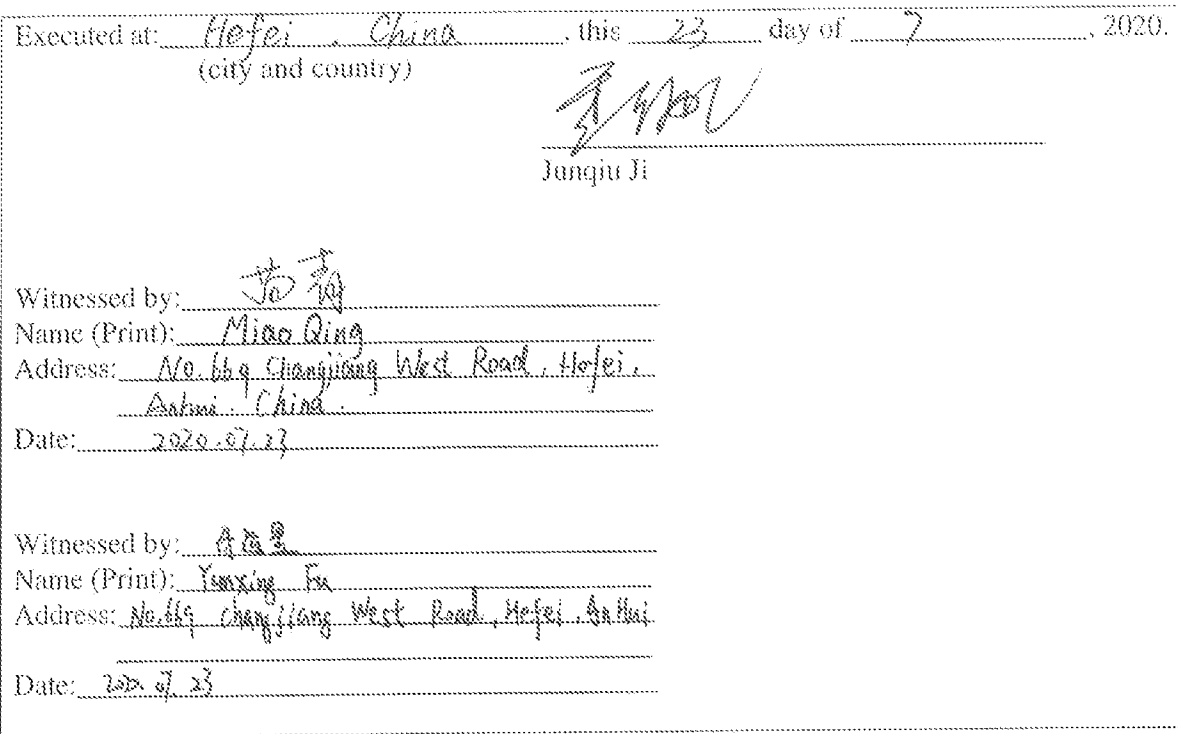 Executed at: Hefei, China, this 23 day of 7, 2020.
(city and country)
Junqiu Ji
Witnessed by: 苗青
Name (Print): Miao Qing
Address: No. 669 Changjiang West Road, Hefei,
Anhui, China.
Date: 2020.07.23
Witnessed by:
Name (Print): Yunxing Fu
Address: No.669 Changjiang West Road, Hefei, AnHui
Date: 2020.07.23